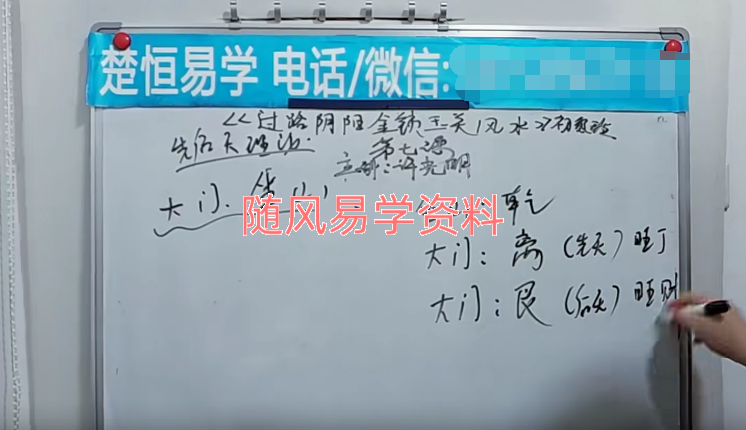 楚恒易学 电话/微信:
《过路阴阳金锁玉关》风水
先后天理论: 第七课
主讲:许光明
大门、
随风易学资料
乾
大门: 离 (先天) 旺丁
大门: 艮 (后天) 旺财